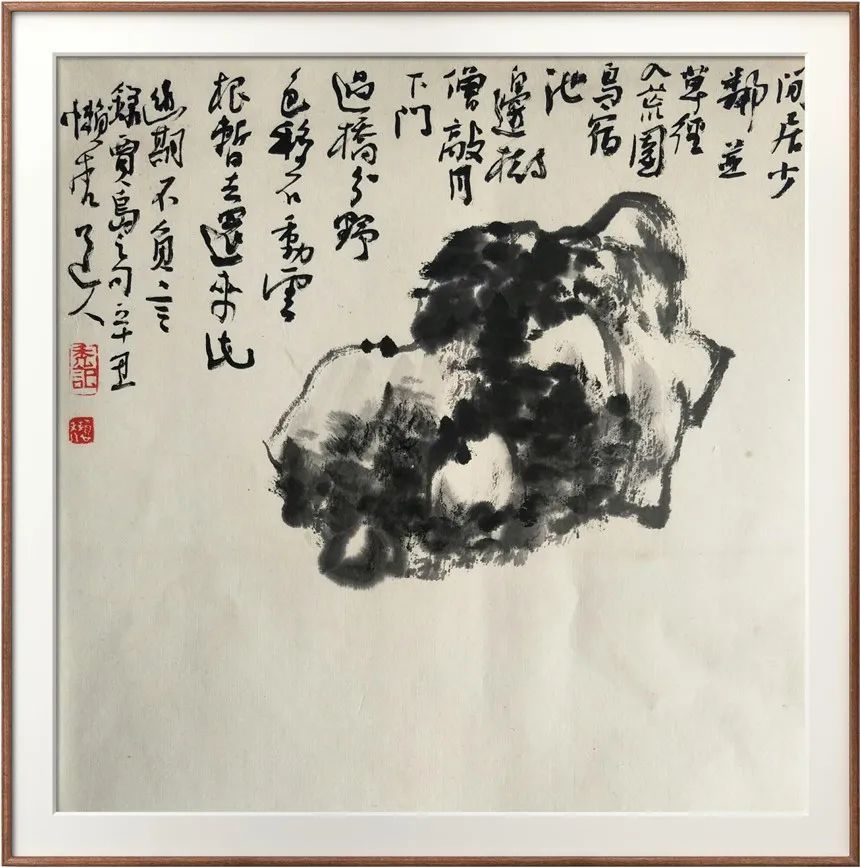 閒居少
鄰並
草徑
入荒園
鳥宿
池
邊樹
僧敲月
下門
過橋分野
色移石動雲
根暫去還來此
幽期不負言
錄賈島之句辛丑
懶道人